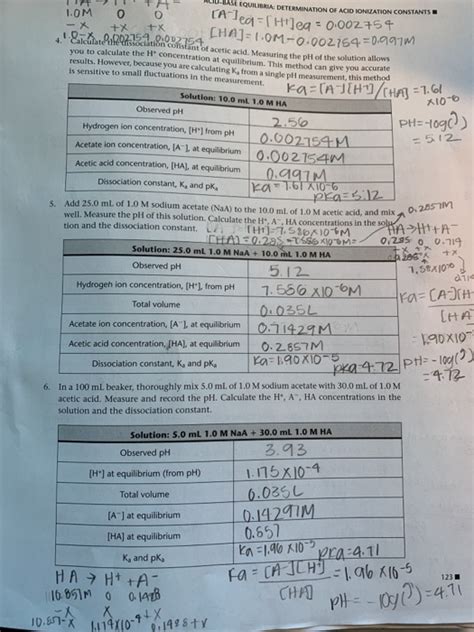 ACID-BASE EQUILIBRIA: DETERMINATION OF ACID IONIZATION CONSTANTS ■
1.0M 0 0
-X +X +X
1.0-X 0.002754 0.002754
[A⁻]eq = [H⁺]eq = 0.002754
[HA] = 1.0M - 0.002754 = 0.997M
4. Calculate the dissociation constant of acetic acid. Measuring the pH of the solution allows
you to calculate the H⁺ concentration at equilibrium. This method can give you accurate
results. However, because you are calculating Kₐ from a single pH measurement, this method
is sensitive to small fluctuations in the measurement.
Ka = [A⁻][H⁺]/[HA] = 7.61
×10-6
pH = -log(?)
= 5.12
Solution: 10.0 mL 1.0 M HA
Observed pH 2.56
Hydrogen ion concentration, [H⁺] from pH 0.002754M
Acetate ion concentration, [A⁻], at equilibrium 0.002754M
Acetic acid concentration, [HA], at equilibrium 0.997M
Dissociation constant, Kₐ and pKₐ Ka = 7.61 X10-6 pKa = 5.12
5. Add 25.0 mL of 1.0 M sodium acetate (NaA) to the 10.0 mL of 1.0 M acetic acid, and mix
well. Measure the pH of this solution. Calculate the H⁺, A⁻, HA concentrations in the solu-
tion and the dissociation constant.
0.2857M
[H⁺] = 7.586 x10-6M
HA → H⁺ + A⁻
0.285 0 0.714
Solution: 25.0 mL 1.0 M NaA + 10.0 mL 1.0 M HA
Observed pH 5.12
Hydrogen ion concentration, [H⁺], from pH 7.586 X10-6M
Total volume 0.035L
Acetate ion concentration, [A⁻], at equilibrium 0.71429M
Acetic acid concentration, [HA], at equilibrium 0.2857M
Dissociation constant, Kₐ and pKₐ Ka = 1.90 X10-5 pKa = 4.72
Ka = [A⁻][H⁺
[HA]
= 1.90X10-
pH = -log(?)
= 4.72
6. In a 100 mL beaker, thoroughly mix 5.0 mL of 1.0 M sodium acetate with 30.0 mL of 1.0 M
acetic acid. Measure and record the pH. Calculate the H⁺, A⁻, HA concentrations in the
solution and the dissociation constant.
Solution: 5.0 mL 1.0 M NaA + 30.0 mL 1.0 M HA
Observed pH 3.93
[H⁺] at equilibrium (from pH) 1.175 X10-4
Total volume 0.035L
[A⁻] at equilibrium 0.14291M
[HA] at equilibrium 0.857
Kₐ and pKₐ Ka = 1.96 X10-5 pKa = 4.71
HA → H⁺ + A⁻
Ka = [A⁻][H⁺] = 1.96 X10-5
[HA]
123 ■
pH = -log(?) = 4.71